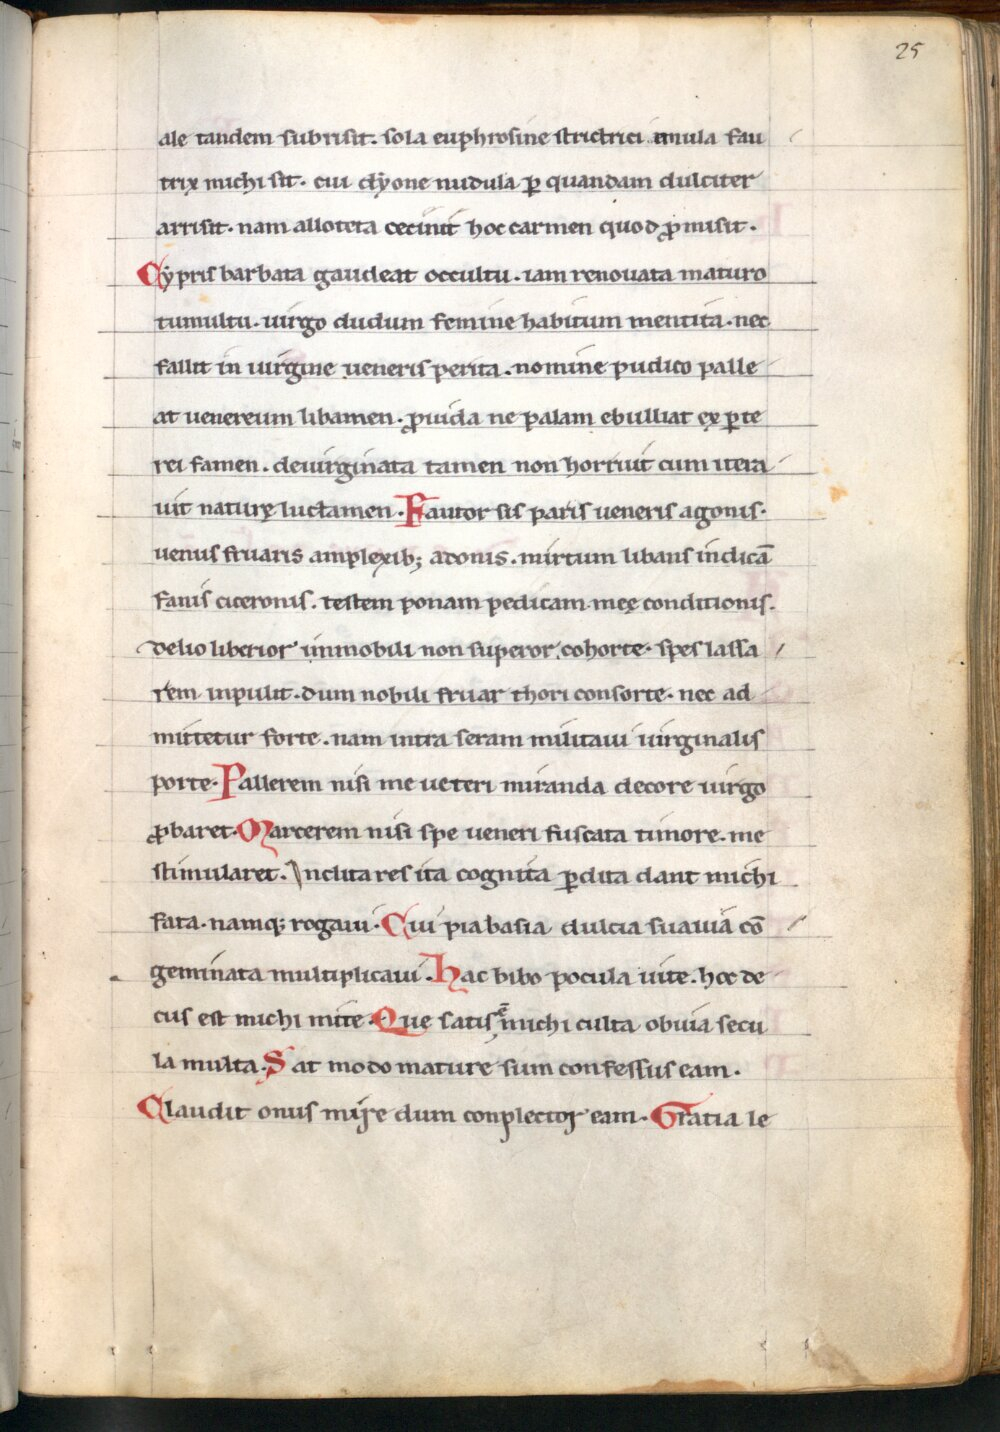 25
ale tandem subrisit. sola euphrosine strictrici emula fau
trix michi sit. cui dẏone nudula ꝑ quandam dulciter
arrisit. nam alloteta cecinit hoc carmen quod ꝓmisit.
Cẏpris barbata gaudeat occultu. iam renouata maturo
tumultu. uirgo dudum femine habitum mentita. nec
fallit in uirgine ueneris perita. nomine pudico palle
at uenereum libamen. ꝓuida ne palam ebulliat ex ꝑte
rei famen. deuirginata tamen non horruit cum itera
uit naturę luctamen. Fautor sis paris ueneris agonis.
uenus fruaris amplexib; adonis. mirtum libans indicā
fanis ciceronis. testem ponam pedicam meę conditionis.
delio liberior immobili non superor cohorte. spes lassa
rem inpulit. dum nobili fruar thori consorte. nec ad
mittetur forte. nam intra seram militaui uirginalis
porte. Pallerem nisi me ueteri miranda decore uirgo
ꝓbaret. Marcerem nisi spe ueneri fuscata timore. me
stimularet. Inclita res ita cognita ꝑdita dant michi
fata. namq; rogaui. Cui pia basia dulcia suauia cō
geminata multiplicaui. Hac bibo pocula uite. hoc de
cus est michi mite. Que satis ē michi culta obuia secu
la multa. Sat modo mature sum confessus eam.
Claudit onus mire dum conplector eam. Gratia le